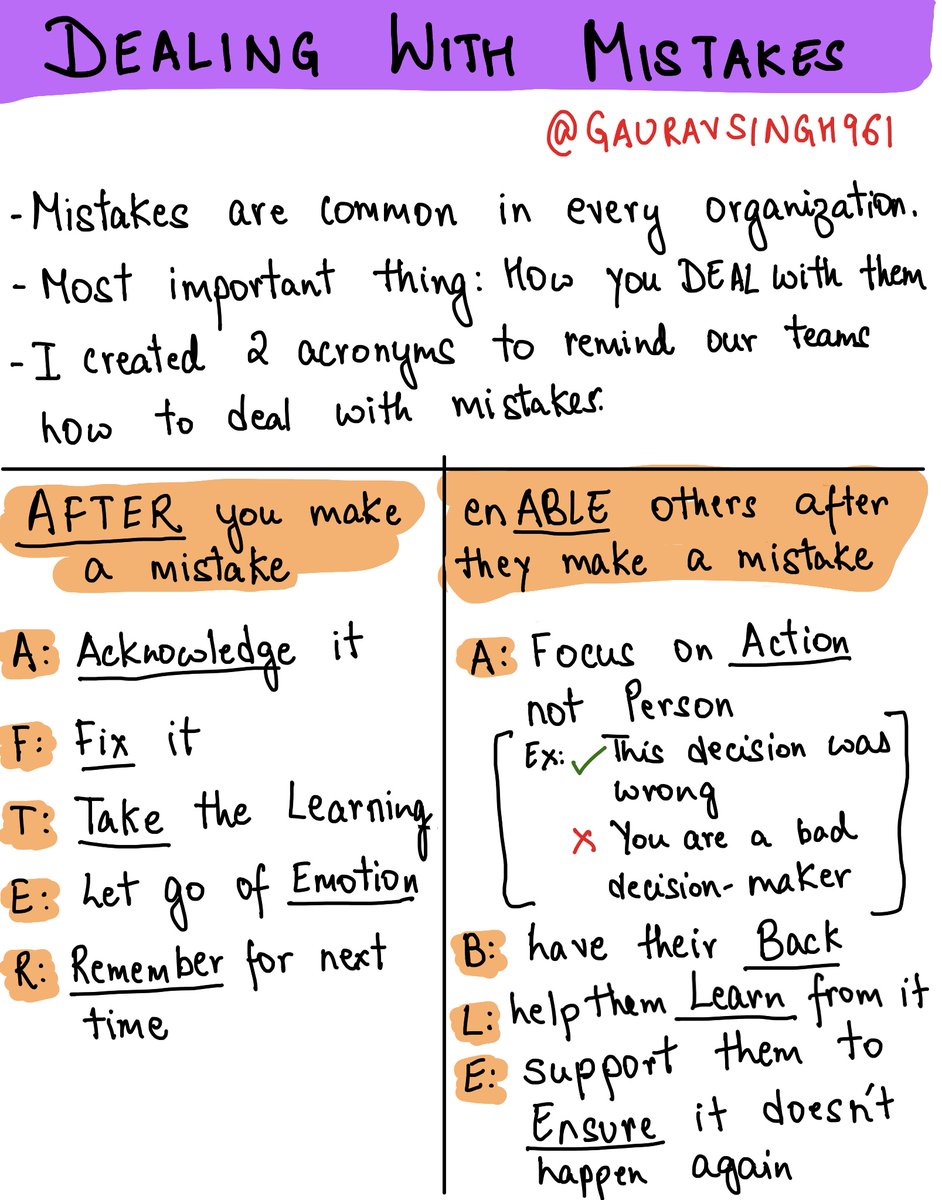 DEALING WITH MISTAKES
@GAURAVSINGH961
- Mistakes are common in every organization.
- Most important thing: How you DEAL with them
- I created 2 acronyms to remind our teams
how to deal with mistakes.
AFTER you make
a mistake
A: Acknowledge it
F: Fix it
T: Take the Learning
E: Let go of Emotion
R: Remember for next
time
enABLE others after
they make a mistake
A: Focus on Action
not Person
Ex: ✓ This decision was
wrong
✗ You are a bad
decision-maker
B: have their Back
L: help them Learn from it
E: support them to
Ensure it doesn't
happen again